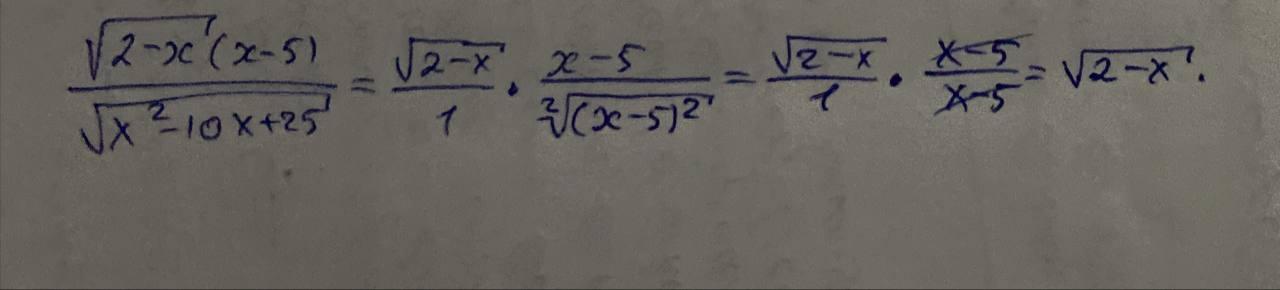 \frac{\sqrt{2-x}(x-5)}{\sqrt{x^2-10x+25}} = \frac{\sqrt{2-x}}{1} \cdot \frac{x-5}{\sqrt[2]{(x-5)^2}} = \frac{\sqrt{2-x}}{1} \cdot \frac{x-5}{x-5} = \sqrt{2-x}.